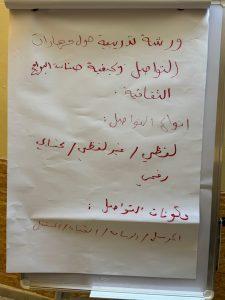 ورشة تدريبية حول مهارات
التواصل وكيفية صناعة البرامج
الثقافية.
أنواع التواصل:
لفظي / غير لفظي / كتابي
رقمي
مكونات التواصل:
المرسل / الرسالة / القناة / المستقبل